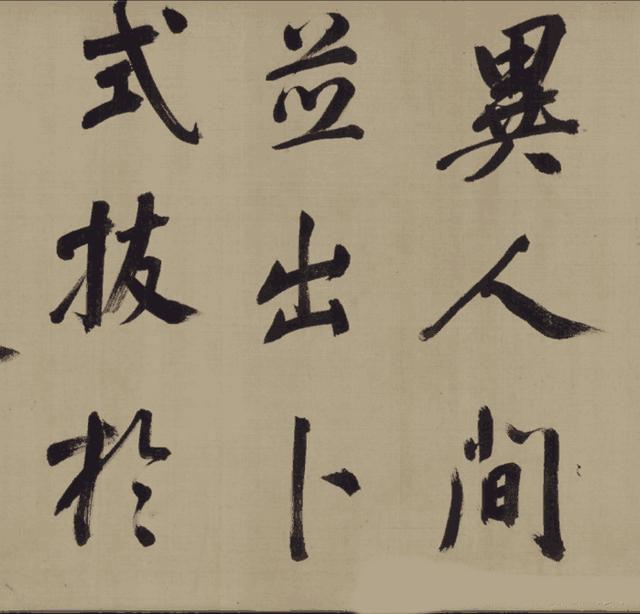 異人間
並出卜
式拔於